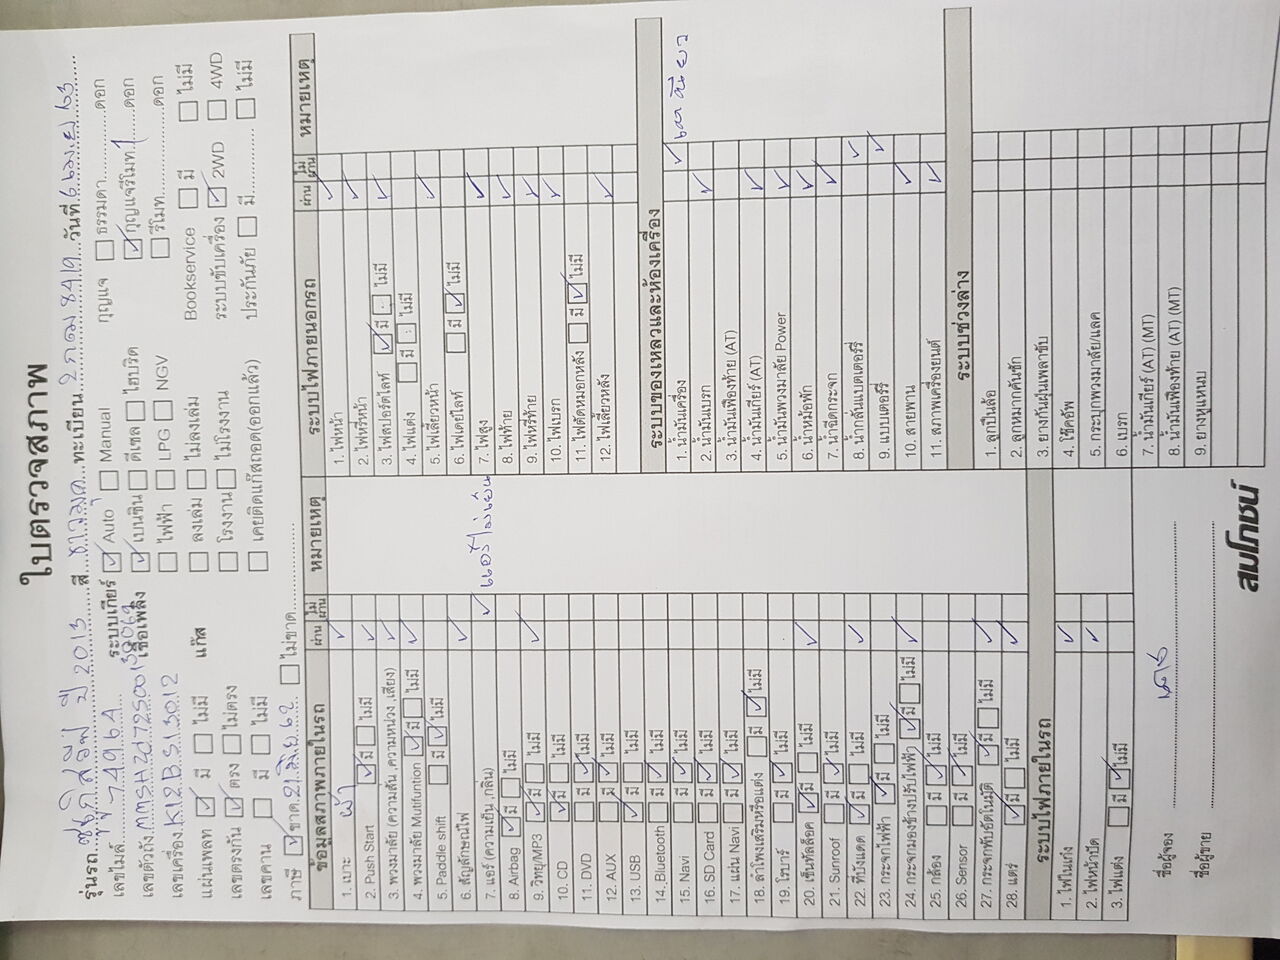 ใบตรวจสภาพ
รุ่นรถ ซูซูกิ สวิฟ ปี 2013 สี ขาวมุก ทะเบียน 2กฌ 8419 วันที่ 6 เม.ย 63
เลขไมล์ 74964 ระบบเกียร์ Auto Manual กุญแจ ธรรมดา ดอก
เลขตัวถัง เชื้อเพลิง เบนซิน ดีเซล ไฮบริด กุญแจรีโมท 1 ดอก
เลขเครื่อง K12B S13012 ไฟฟ้า LPG NGV รีโมท ดอก
แผ่นเพลท มี ไม่มี แก๊ส ลงเล่ม ไม่ลงเล่ม Bookservice มี ไม่มี
เลขตรงกัน ตรง ไม่ตรง โรงงาน ไม่โรงงาน ระบบขับเครื่อง 2WD 4WD
เลขคาน มี ไม่มี เคยติดแก๊สถอด(ออกแล้ว) ประกันภัย มี ไม่มี
ภาษี ขาด 21 มิ.ย 62 ไม่ขาด
ข้อมูลสภาพภายในรถ ผ่าน ไม่ผ่าน หมายเหตุ
1. เบาะ ผ้า
2. Push Start มี ไม่มี
3. พวงมาลัย (ความสั่น ,ความหน่วง ,เสียง)
4. พวงมาลัย Mutifuntion มี ไม่มี
5. Paddle shift มี ไม่มี
6. สัญลักษณ์ไฟ
7. แอร์ (ความเย็น กลิ่น) แอร์ไม่เย็น
8. Airbag มี ไม่มี
9. วิทยุ/MP3 มี ไม่มี
10. CD มี ไม่มี
11. DVD มี ไม่มี
12. AUX มี ไม่มี
13. USB มี ไม่มี
14. Bluetooth มี ไม่มี
15. Navi มี ไม่มี
16. SD Card มี ไม่มี
17. แผ่น Navi มี ไม่มี
18. ลำโพงเสริมหรือแต่ง มี ไม่มี
19. โรบาร์ มี ไม่มี
20. เซ็นทัลล็อค มี ไม่มี
21. Sunroof มี ไม่มี
22. ที่บังแดด มี ไม่มี
23. กระจกไฟฟ้า มี ไม่มี
24. กระจกมองข้างปรับไฟฟ้า มี ไม่มี
25. กล้อง มี ไม่มี
26. Sensor มี ไม่มี
27. กระจกพับอัตโนมัติ มี ไม่มี
28. แตร มี ไม่มี
ระบบไฟภายในรถ
1. ไฟในเก๋ง
2. ไฟหน้าปัด
3. ไฟแต่ง มี ไม่มี
ระบบไฟภายนอกรถ ผ่าน ไม่ผ่าน หมายเหตุ
1. ไฟหน้า
2. ไฟหรี่หน้า
3. ไฟสปอร์ตไลท์ มี ไม่มี
4. ไฟแต่ง มี ไม่มี
5. ไฟเลี้ยวหน้า
6. ไฟเดย์ไลท์ มี ไม่มี
7. ไฟสูง
8. ไฟท้าย
9. ไฟหรี่ท้าย
10. ไฟเบรก
11. ไฟตัดหมอกหลัง มี ไม่มี
12. ไฟเลี้ยวหลัง
ระบบของเหลวและห้องเครื่อง
1. น้ำมันเครื่อง
2. น้ำมันเบรก
3. น้ำมันเฟืองท้าย (AT)
4. น้ำมันเกียร์ (AT)
5. น้ำมันพวงมาลัย Power
6. น้ำหม้อพัก
7. น้ำฉีดกระจก
8. น้ำกลั่นแบตเตอร์รี่
9. แบตเตอร์รี่
10. สายพาน
11. สภาพเครื่องยนต์
ระบบช่วงล่าง
1. ลูกปืนล้อ
2. ลูกหมากคันชัก
3. ยางกันฝุ่นเพลาขับ
4. โช๊คอัพ
5. กระบุกพวงมาลัย/แลค
6. เบรก
7. น้ำมันเกียร์ (AT) (MT)
8. น้ำมันเฟืองท้าย (AT) (MT)
9. ยางหูแหนบ
ชื่อผู้จอง
ชื่อผู้ขาย
สมโภชน์